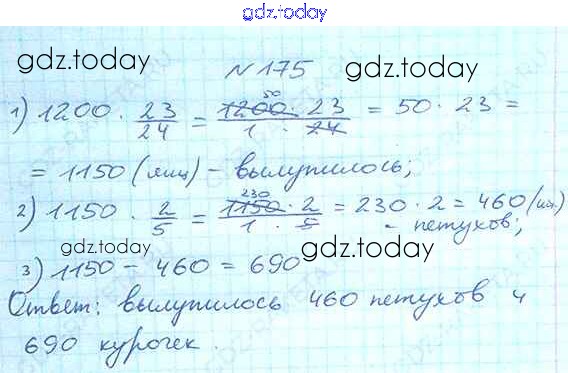 gdz.today
gdz.today
gdz.today
№ 175
1) 1200 · 23/24 = 1200 · 23 / 1 · 24 = 50 · 23 =
50
= 1150 (яиц) - вылупилось;
2) 1150 · 2/5 = 1150 · 2 / 1 · 5 = 230 · 2 = 460 (шт.)
230
- петухов;
gdz.today
gdz.today
3) 1150 - 460 = 690
Ответ: вылупилось 460 петухов и
690 курочек.